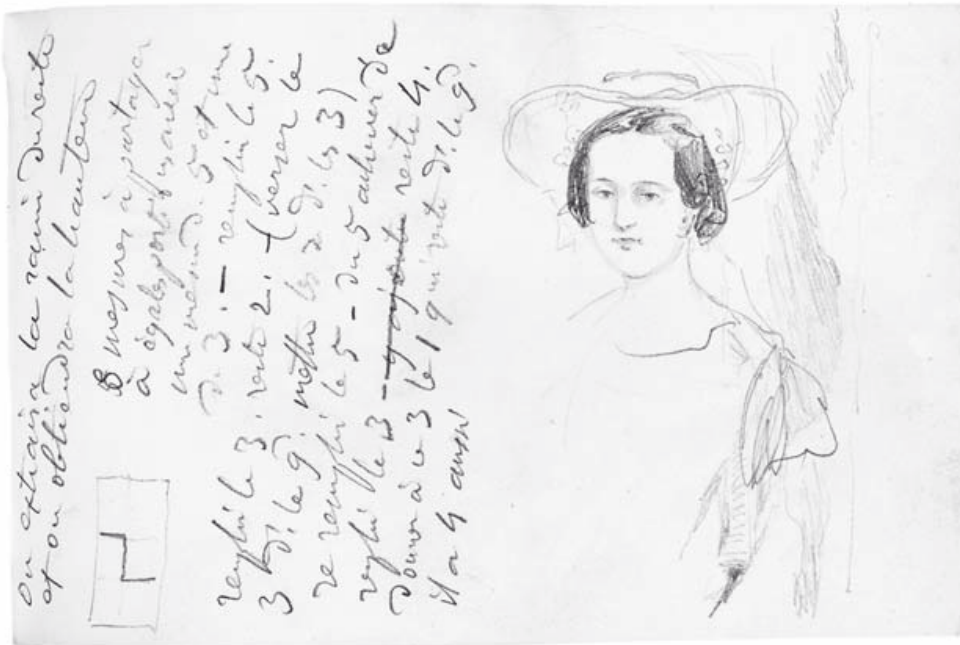 On extraira la racine du reste
et on obtiendra la hauteur
8 mesures à partager
à égales portions avec
une mesure d. 5 et une
de 3. — remplir le 5
remplir le 3. reste 2. — (verser le
3 ds. le 8) mettre les 2 ds. le 3)
re remplir le 5 — du 5 achever de
remplir le 3 — y ajouter reste 4.
donner à ce 3 le 1 qui reste ds. le 8.
il a 4 aussi